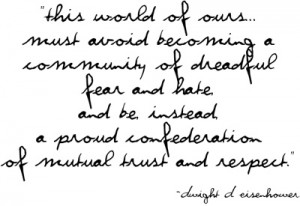 "this world of ours...
must avoid becoming a
community of dreadful
fear and hate,
and be, instead,
a proud confederation
of mutual trust and respect."
~dwight d eisenhower